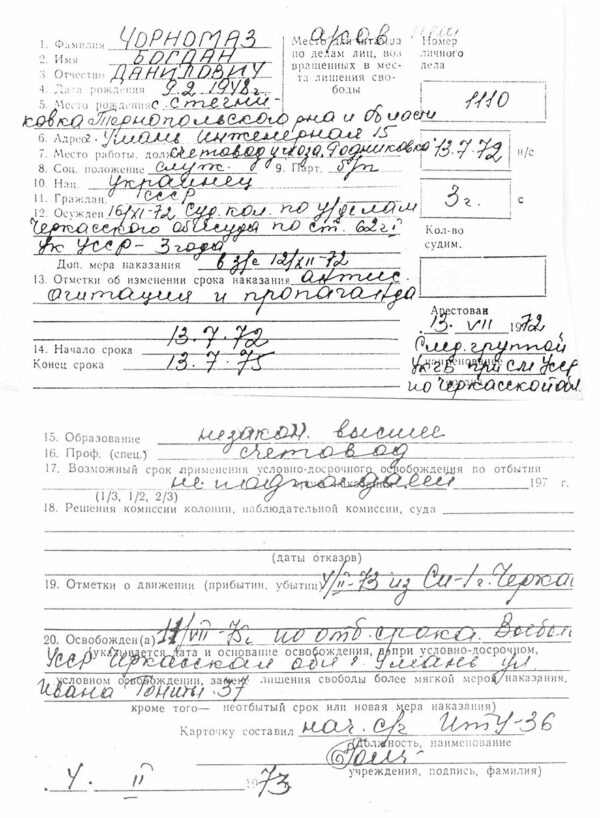 1. Фамилия ЧОРНОМАЗ
2. Имя БОГДАН
3. Отчество ДАНИЛОВИЧ
4. Дата рождения 9.2.1948г.
5. Место рождения с. Стегни-
ковка Тернопольского р-на и области
6. Адрес г. Умань Инженерная 15
7. Место работы, долж счетовод Родниковка
8. Соц. положение служ. 9. Парт. б/п
10. Нац. украинец
11. Граждан. СССР
12. Осужден 16/XI-72 Суд. кол. по у/делам
Черкасского облсуда по ст. 62 ч I
УК УССР - 3 года
Доп. мера наказания в з/с 12/XII-72
13. Отметки об изменении срока наказания антис.
агитация и пропаганда
14. Начало срока 13.7.72
Конец срока 13.7.75
Место для штампа
по делам лиц, воз
вращенных в мес-
та лишения сво-
боды
Номер
личного
дела
1110
13.7.72 н/с
3 г. с
Кол-во
судим.
Арестован
13. VII 1972
След. группой
УКГБ при СМ УССР
по Черкасской обл.
15. Образование незакон. высшее
16. Проф. (спец.) счетовод
17. Возможный срок применения условно-досрочного освобождения по отбытии
не подпадает 197 г.
(1/3, 1/2, 2/3)
18. Решения комиссии колонии, наблюдательной комиссии, суда
(даты отказов)
19. Отметки о движении (прибытии, убытии) 4/II-73 из Си-1 г. Черка
20. Освобожден(а) 11/VII-75г по отб. срока. Выбыл
(указывается дата и основание освобождения, а при условно-досрочном,
УССР Черкасская обл г. Умань ул.
условном освобождении, замене лишения свободы более мягкой мерой наказания,
Ивана Гонты 37
кроме того— неотбытый срок или новая мера наказания)
Карточку составил нач. с/ч ИТУ-36
(должность, наименование
учреждения, подпись, фамилия)
4. II 1973